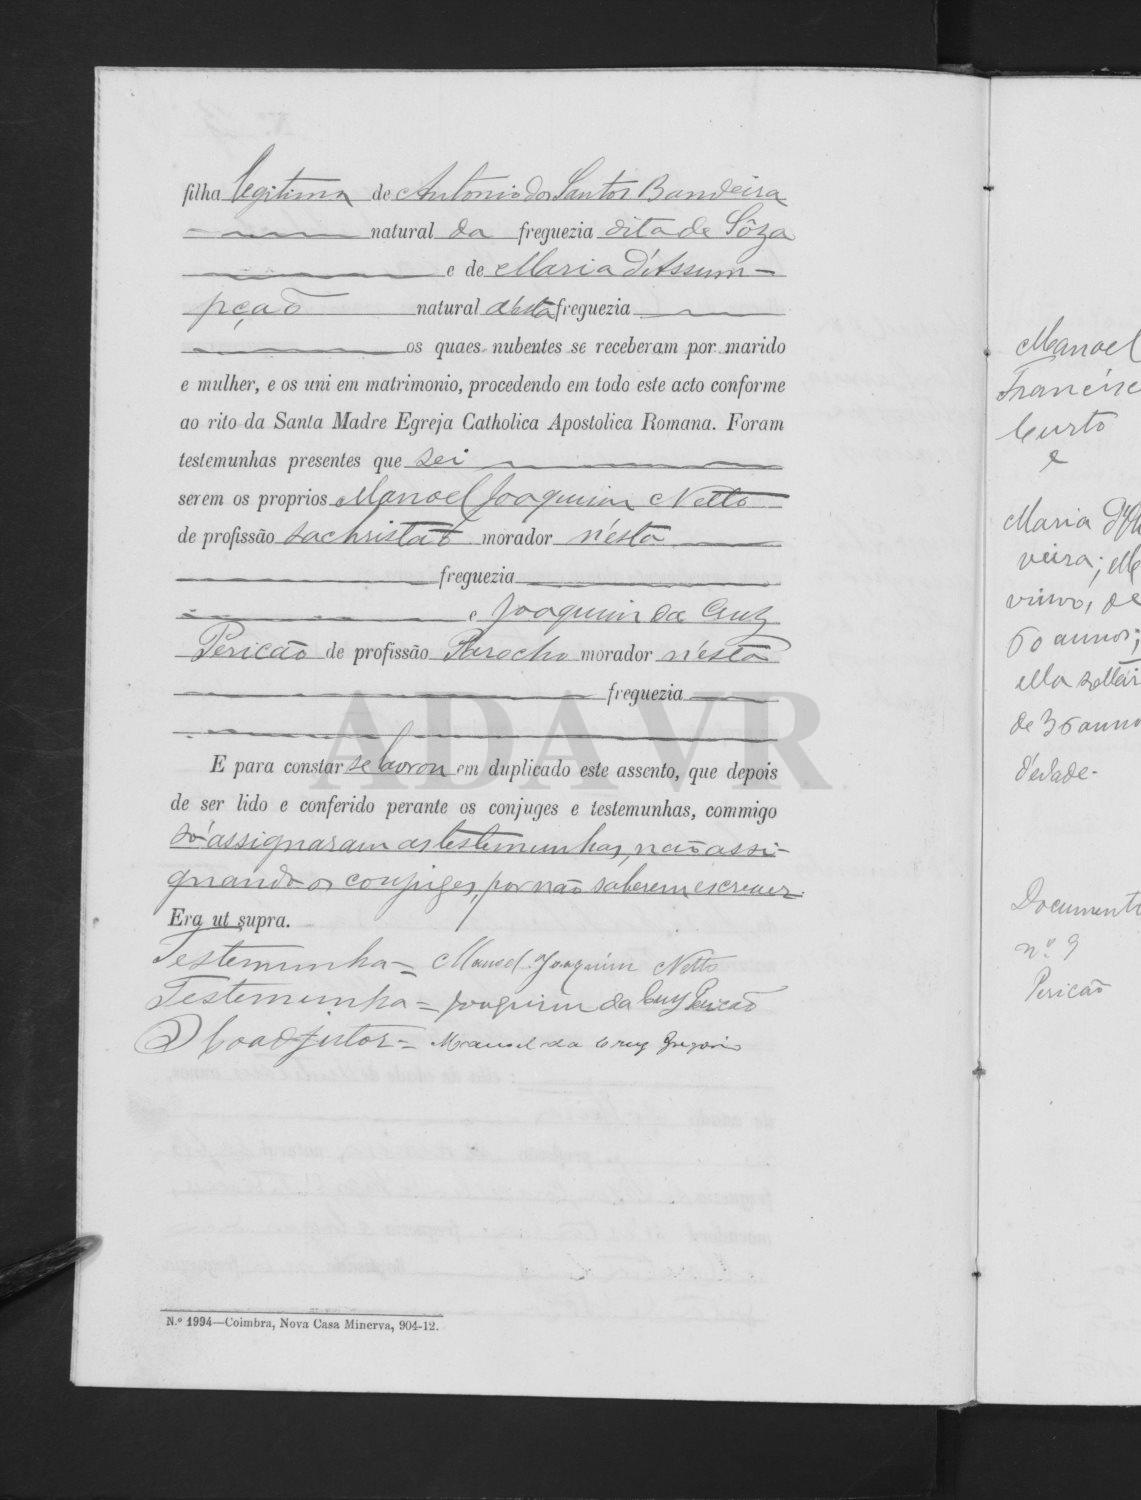 filha legitima de Antonio dos Santos Bandeira
natural da freguezia dita de Sôza
e de Maria d'Assum-
pção natural d'esta freguezia
os quaes nubentes se receberam por marido
e mulher, e os uni em matrimonio, procedendo em todo este acto conforme
ao rito da Santa Madre Egreja Catholica Apostolica Romana. Foram
testemunhas presentes que sei
serem os proprios Manoel Joaquim Netto
de profissão sachristão morador n'esta
freguezia
e Joaquim da Cruz
Pericão de profissão Parocho morador n'esta
freguezia
E para constar se lavrou em duplicado este assento, que depois
de ser lido e conferido perante os conjuges e testemunhas, commigo
só assignaram as testemunhas, não assi-
gnando os conjuges, por não saberem escrever.
Era ut supra.
Testemunha = Manoel Joaquim Netto
Testemunha = Joaquim da Cruz Pericão
O Coadjutor = Manuel da Cruz
N.º 1994—Coimbra, Nova Casa Minerva, 904-12.
ADAVR
Manoel
Francisc
Curto
e
Maria d'Oli
veira; 
viuvo, de
60 annos;
ella soltei
de 36 anno
d'edade.
Documento
n.º 9
Pericão